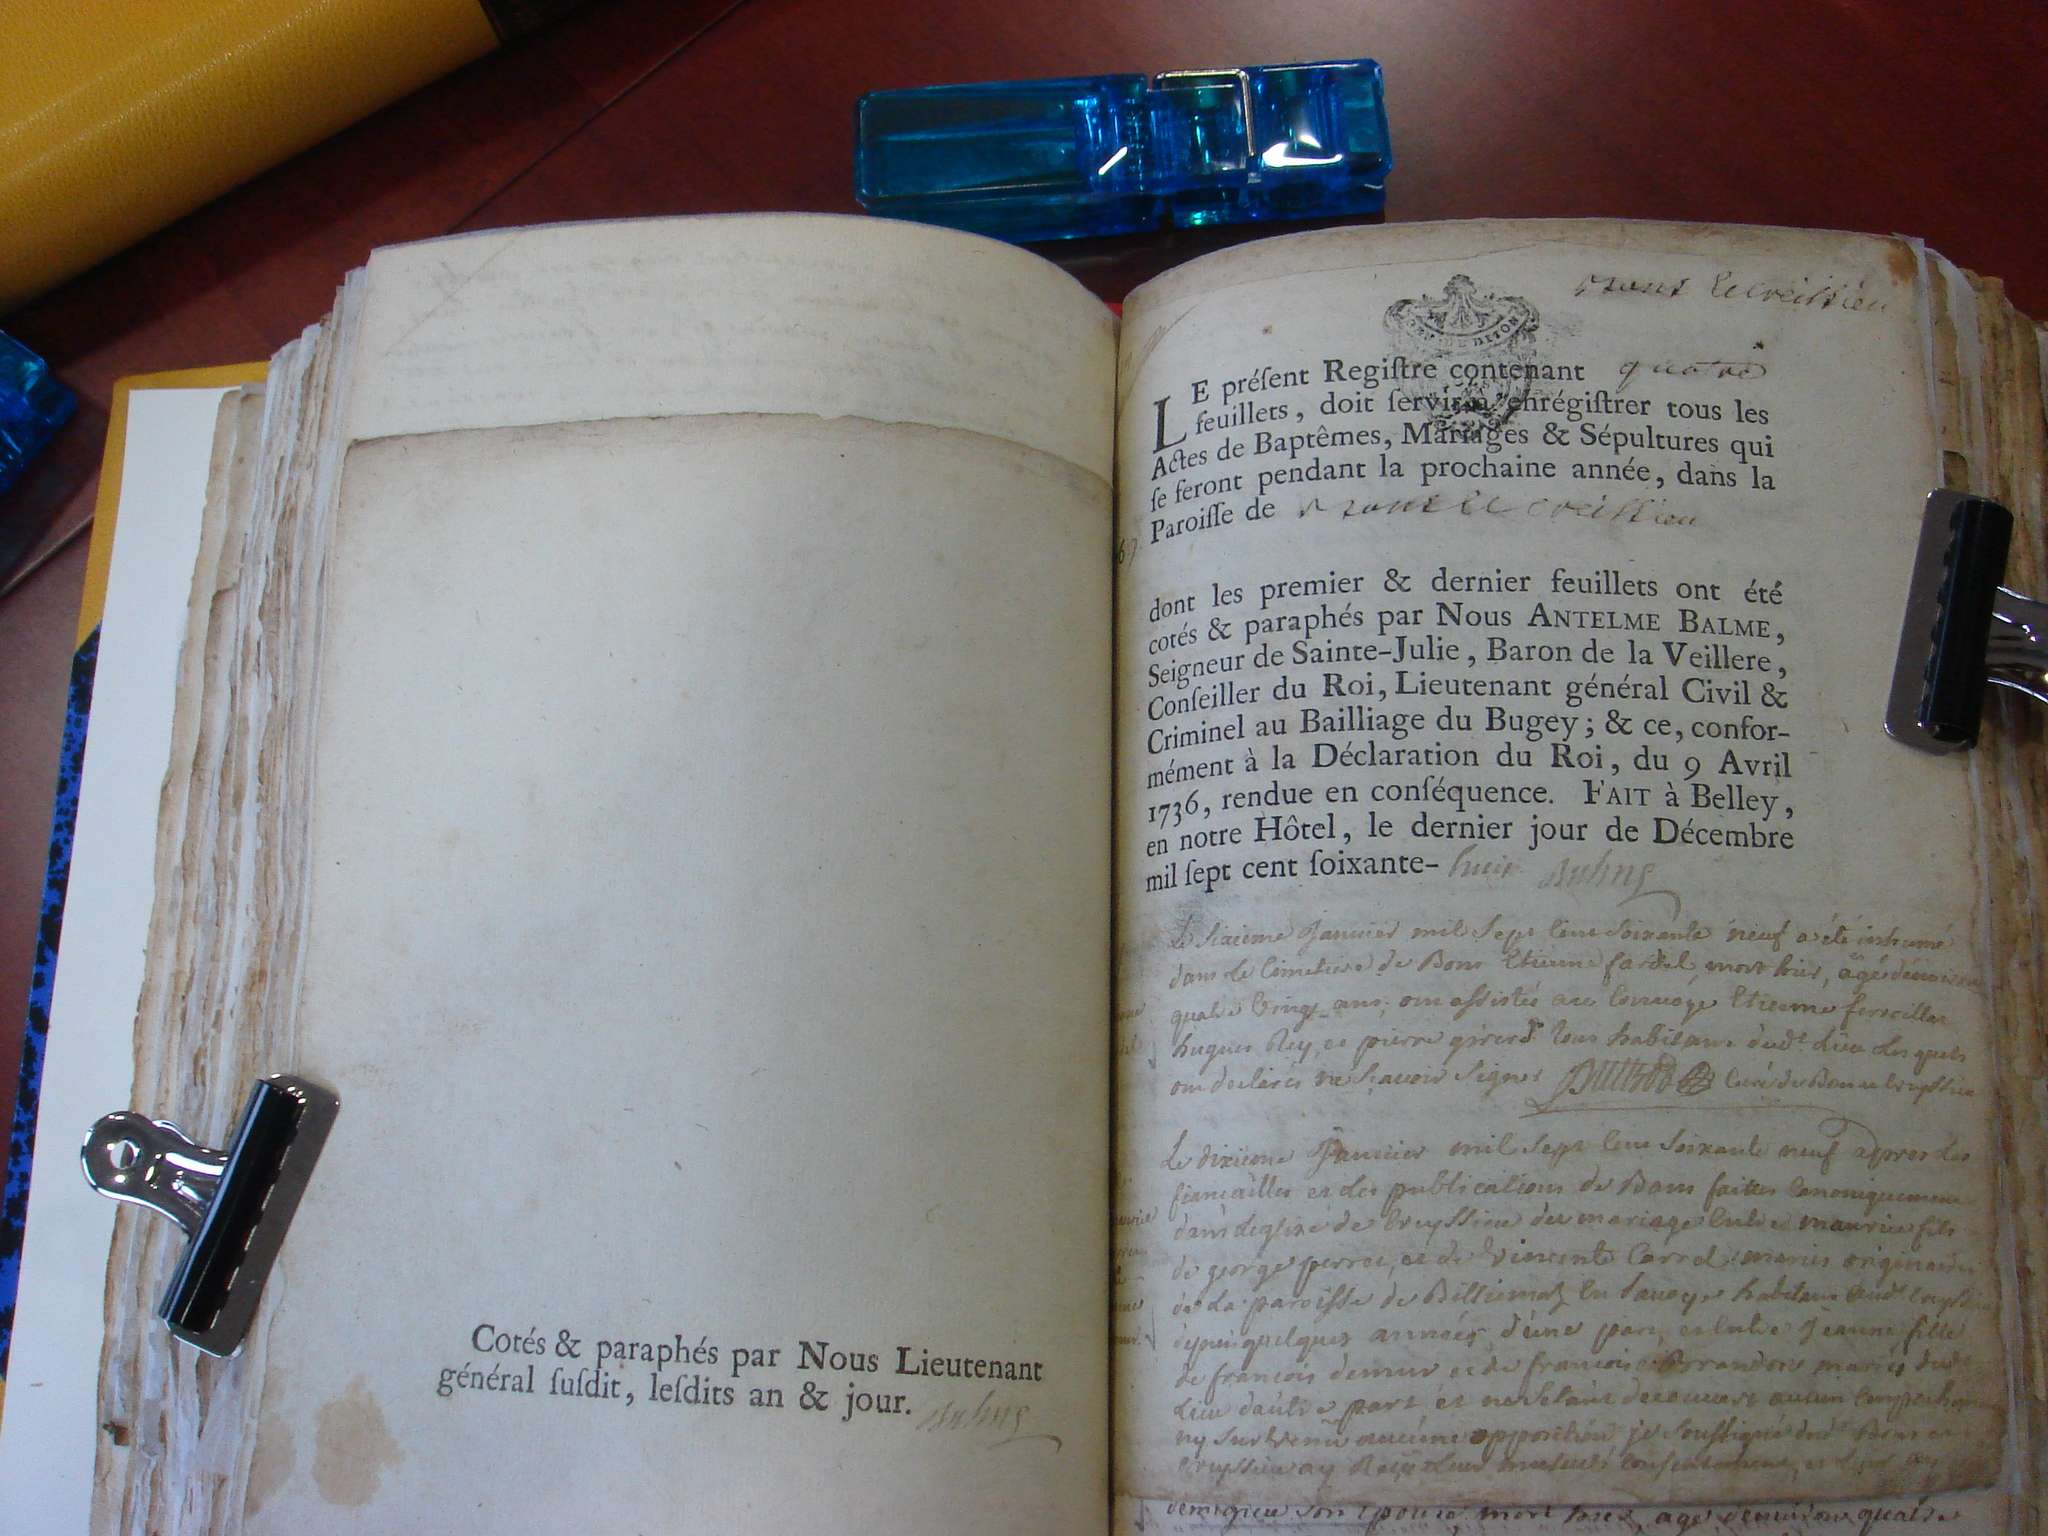 Cotés & paraphés par Nous Lieutenant
général ſuſdit, leſdits an & jour.
LE préſent Regiſtre contenant quatre
feuillets, doit ſervir à enrégiſtrer tous les
Actes de Baptêmes, Mariages & Sépultures qui
ſe feront pendant la prochaine année, dans la
Paroiſſe de
dont les premier & dernier feuillets ont été
cotés & paraphés par Nous ANTELME BALME,
Seigneur de Sainte-Julie, Baron de la Veillere,
Conſeiller du Roi, Lieutenant général Civil &
Criminel au Bailliage du Bugey; & ce, confor-
mément à la Déclaration du Roi, du 9 Avril
1736, rendue en conſéquence. FAIT à Belley,
en notre Hôtel, le dernier jour de Décembre
mil ſept cent ſoixante- huit
Le sixieme Janvier mil sept cent soixante neuf a été inhumé
dans le cimetiere de Bons Etienne fardel, mort hier, âgé d'environ
quatre vingt ans; ont assistés au convoÿe Etienne
hugues Rey, et pierre girerd tous habitans dudt lieu lesquels
ont declarés ne scavoir signer curé de Bons
Le dixieme Janvier mil sept cent soixante neuf apres les
fiancailles et les publications de Bans faittes canoniquement
dans leglise de du mariage entre maurice fils
de george perret, et de vincente Carrel mariés originaires
de la paroisse de en savoye habitans audt
depuis quelques années d'une part, et entre Jeanne fille
de francois demur et de francoise mariés dudt
lieu d'autre part et ne s'etant decouvert aucun
ny survenu aucune opposition je soussigné dudt Bons et
ay Reçu leur mutuel consentement, et leur
son epoux, mort hier, agé d'environ quatre